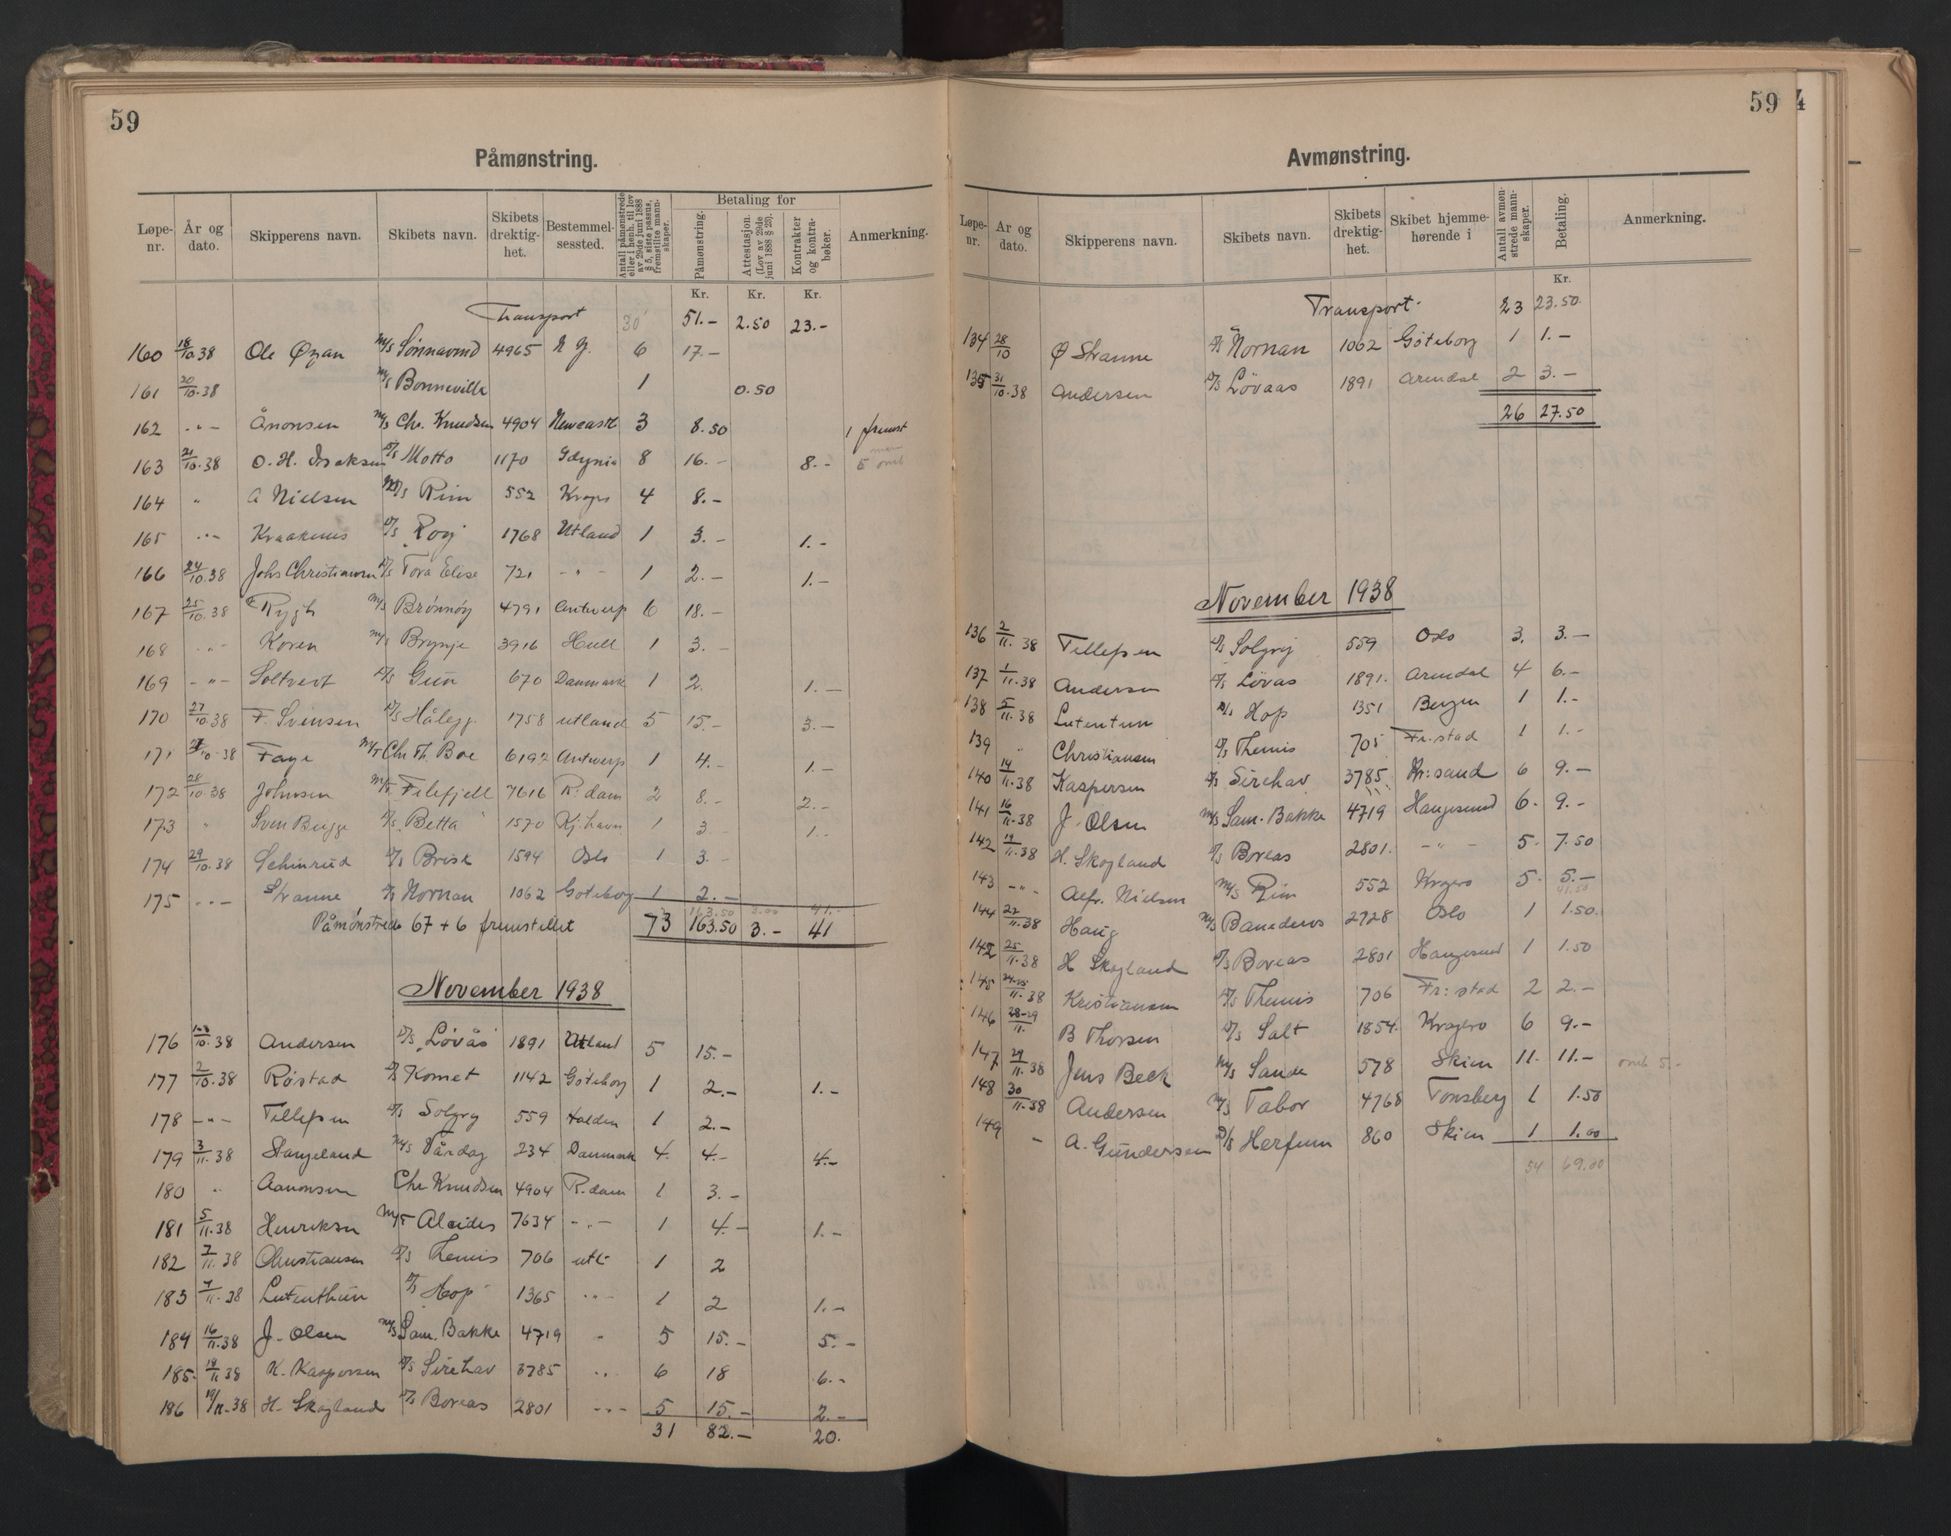 59
Påmønstring.
Løpe-nr. År og dato. Skipperens navn. Skibets navn. Skibets drektig-het. Bestemmel-sessted. Antall påmønstrede eller i henh. til lov av 29de juni 1888 § 5, siste passus, fremstilte mann-skaper. Betaling for Påmønstring. Attestasjon. (Lov av 29de juni 1888 § 23). Kontrakter og kontra-bøker. Anmerkning.
Kr. Kr. Kr.
Transport 30 51.- 2.50 23.-
160 18/10 38 Ole Øyan M/S Sønnavind 4965 N.Y. 6 17.-
161 20/10.38 M/S Bonneville 1 0.50
162 -"- Ånonsen M/S Chr. Knudsen 4904 Newcastl 3 8.50
1 fremst
163 21/10.38 O. H. Isaksen D/S Motto 1170 Gdynia 8 16.- 8.-
164 " A Nielsen M/S Rim 552 Kragø 4 8.-
165 -"- Kraakenes D/S Roy 1768 Utland 1 3.- 1.-
166 24/10.38 Johs Christiansen D/S Tora Elise 721 -"- 1 2.- 1.-
167 25/10.38 Rygh M/S Brønnøy 4791 Antwerp 6 18.-
168 -"- Koren M/S Brynje 3916 Hull 1 3.-
169 -"- Soltvedt D/S Gun 670 Danmark 1 2. 1.-
170 27/10 38 F. Svensen D/S Hålegg 1758 utland 5 15.- 3.-
171 27/10-38 Faye M/T Chr Th. Boe 6192 Antwerp 1 4.- 1.-
172 28/10.38 Johnsen M/T Filefjell 7616 R.dam 2 8.- 2.-
173 " Sven Bugge D/S Betta 1570 Kj.havn 1 3. 1.-
174 29/10.38 Schinrud D/S Brisk 1594 Oslo 1 3.-
175 -"- Stranne D/S Nornan 1062 Göteborg 1 2.-
163.50 3.00 41.-
Påmønstrede 67 + 6 fremstillet 73 163.50 3.- 41
November 1938
176 1-3/10.38 Andersen D/S Løvås 1891 Utland 5 15.-
177 2/10.38 Røstad D/S Komet 1142 Göteborg 1 2.- 1.-
178 -"- Tillefsen D/S Solgry 559 Halden 1 2.-
179 3/11.38 Stangeland M/S Vårdag 234 Danmark 4. 4.- 4.-
180 " Aanonsen Chr Knudsen 4904 R.dam 1 3.-
181 5/11.38 Henriksen M/T Alcides 7634 -"- 1 4.- 1.-
182 7/11.38 Christiansen D/S Themis 706 utl. 1 2
183 7/11.38 Lutenthun D/S Hop 1365 -"- 1 2 1.-
184 16/11.38 J. Olsen M/S Sam. Bakke 4719 " 5 15.- 5.-
185. 18/11 38 K. Kaspersen D/S Sirehav 3785 -"- 6 18 6.-
186 19/11.38 H. Skogland D/S Boreas 2801 -"- 5 15.- 2.-
31 82.- 20.
59
Avmønstring.
Løpe-nr. År og dato. Skipperens navn. Skibets navn. Skibets drektig-het. Skibet hjemme-hørende i Antall avmøn-strede mann-skaper. Betaling. Anmerkning.
Kr.
Transport 23 23.50
134 28/10 Ø Stranne D/S Nornan 1062 Göteborg 1 1.-
135 31/10.38 Andersen D/S Løvaas 1891 Arendal 2 3.-
26 27.50
November 1938
136 2/11.38 Tillefsen D/S Solgry 559 Oslo 3. 3.-
137 1/11.38 Andersen D/S Løvas 1891. Arendal 4 6.-
138 5/11.38 Lutentun D/S Hop 1351 Bergen 1 1.-
139 " Christiansen D/S Themis 705 Fr.stad 1 1.-
140 14/11.38 Kaspersen D/S Sirehav 3785 Kr:sand 6 9.-
141 16/11.38 J. Olsen M/S Sam. Bakke 4719 Haugesund 6. 9.-
142 19/11.38 H. Skogland D/S Boreas 2801. -"- 5. 7.50
143 -"- Alfr. Nielsen M/S Rim 552 Kragerø 5. 5.-
41.50
144 22/11.38 Haug M/S Banaderos 2728 Oslo 1 1.50.
142 25/11.38 H Skogland D/S Boreas 2801 Haugesund 1 1.50
145 24-25/11.38 Kristiansen D/S Themis 706 Fr:stad 2 2.-
146 28-29/11. B Thorsen D/S Salt 1854. Kragerø 6 9.-
147 29/11.38 Jens Beck M/S Sande 578 Skien 11. 11.-
148 30/11.38 Andersen M/S Tabor 4768 Tønsberg 1 1.50
149 - A. Gundersen D/S Herfum 860 Skien 1 1.00
54 69.00